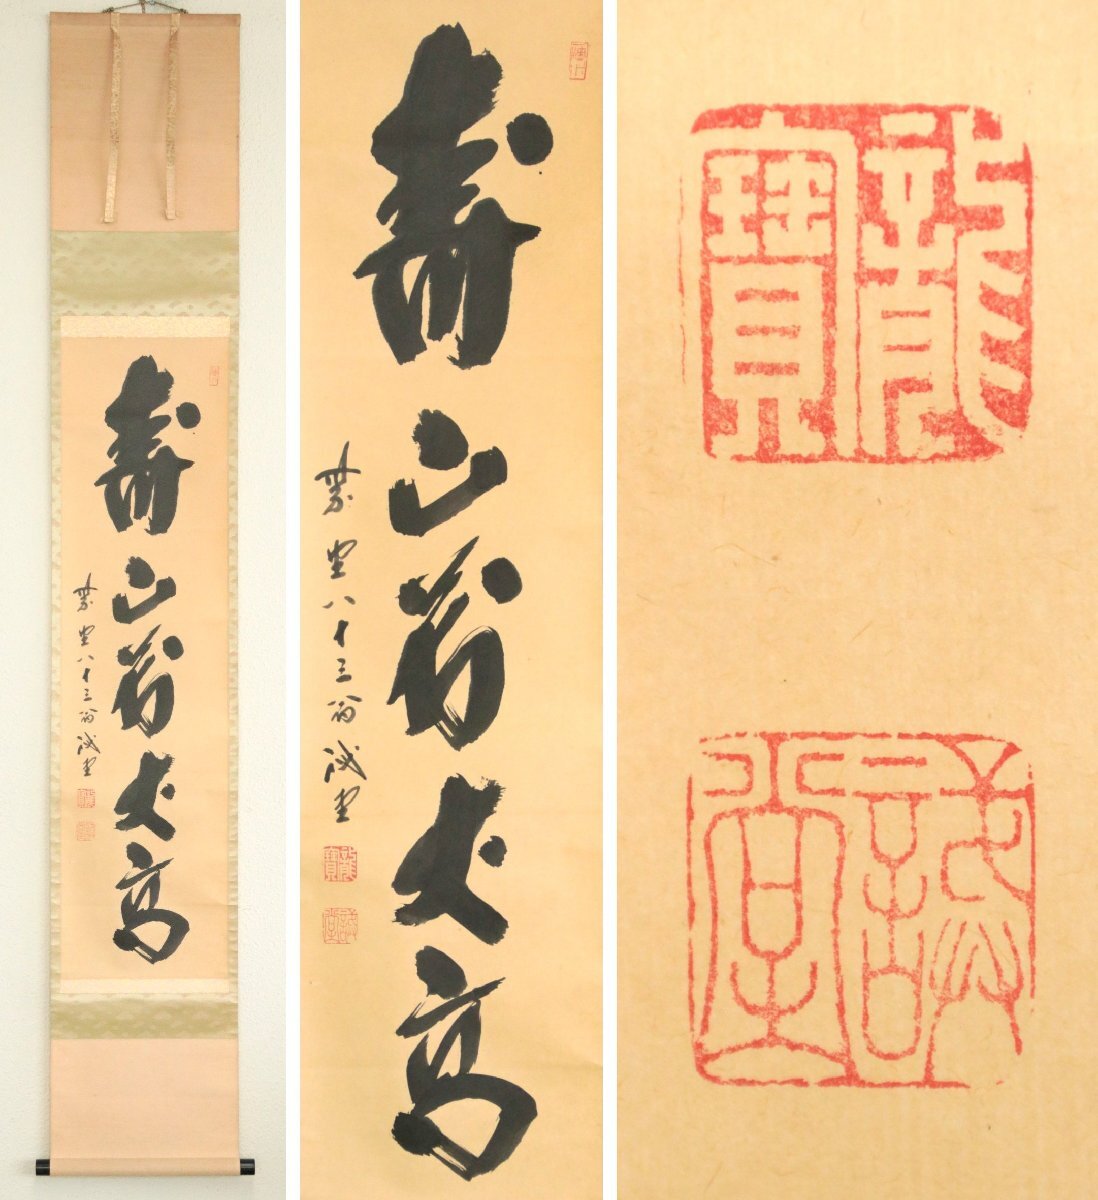 壽山萬丈高
紫野八十三翁誡堂
龍寶
誡堂